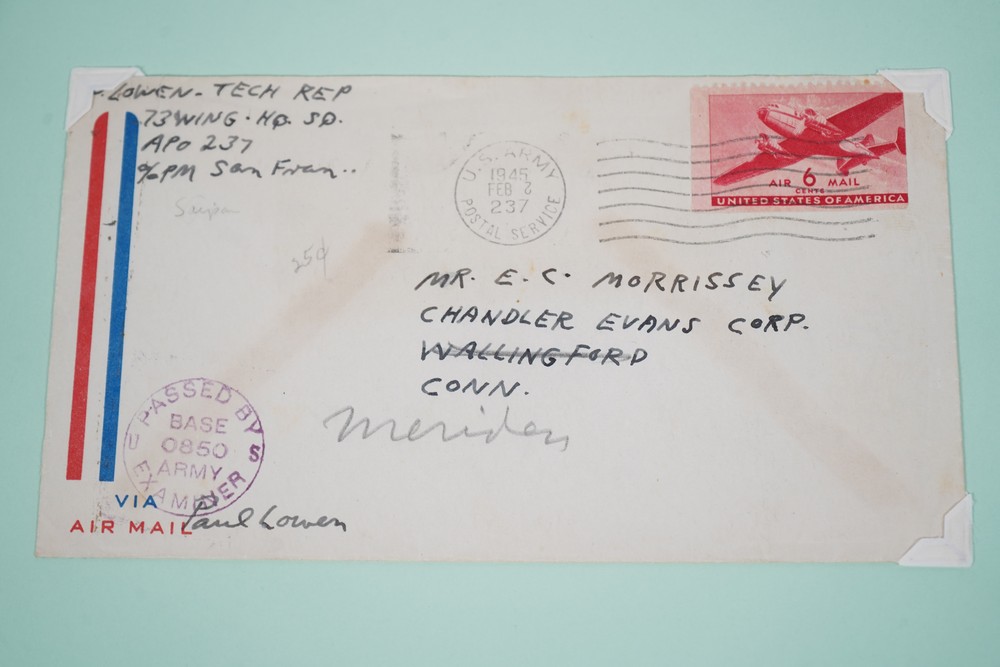 LOWEN - TECH REP
73 WING - HQ. SQ.
APO 237
℅ PM San Fran..
U.S. ARMY
1945
FEB 2
237
POSTAL SERVICE
AIR 6 MAIL
CENTS
UNITED STATES OF AMERICA
25¢
MR. E. C. MORRISSEY
CHANDLER EVANS CORP.
WALLINGFORD
CONN.
Meriden
PASSED BY
BASE
0850
ARMY
EXAMINER
U S
VIA
AIR MAIL
Paul Lowen